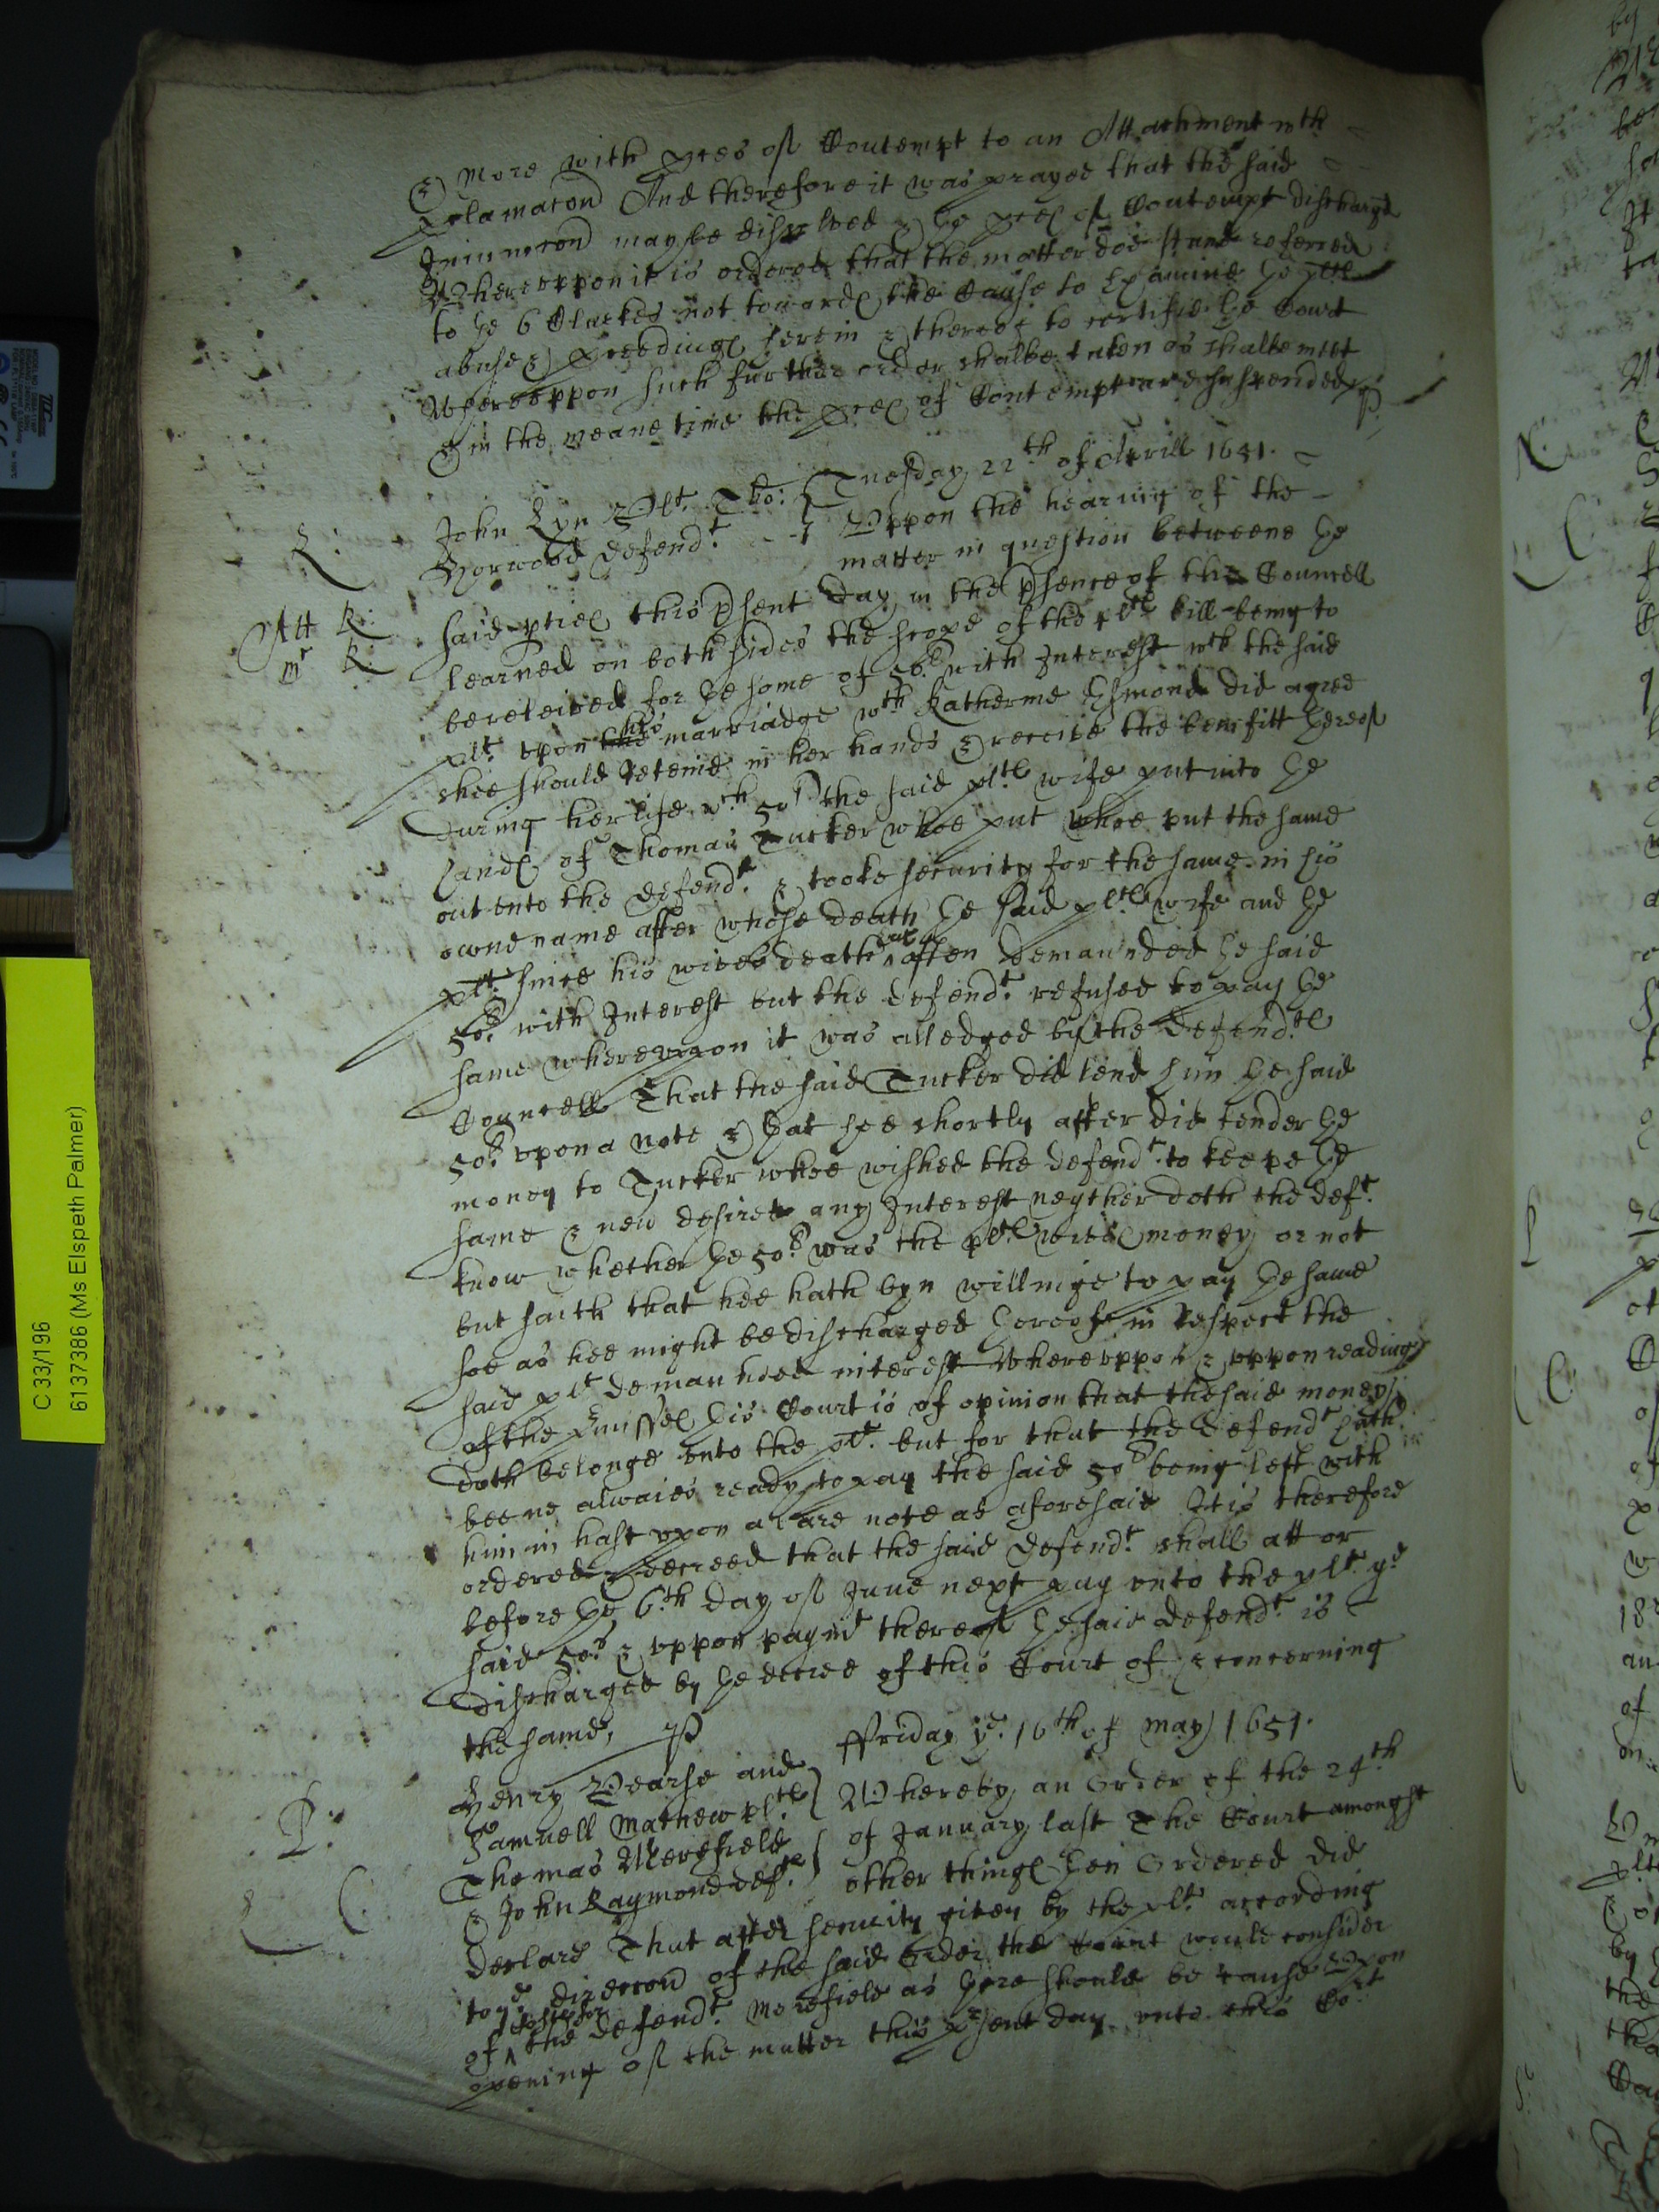 & more with pces of Contempt to an Attachment wth
pclamacon And therefore it was prayed that the said
Iniunccon may be disolved & ye pces of Contempt discharged
Whereuppon it is ordered that the matter doe stand referred
to ye 6 Clarkes not towards the Cause to Examine ye plts
abuse & pceedings herein & thereof to certifie ye Court
Whereuppon such further order shalbe taken as shalbe meet
& in the meane time the pces of Contempt are suspended
Tuesday 22th of Aprill 1651.
John Lyn Plt. Tho: Uppon the hearing of the
Norwood defendt. matter in question betweene ye
said pties this psent day in the psence of the Councell
learned on both sides the scope of the plts bill being to
bereleived for ye some of 50l. with Interest wch the said
plt. upon the his marriadge wth Katherine Esmond did agree
shee should reteine in her hands & receive the benefitt thereof
During her life wch 50l the said plts wife put into ye
hands of Thomas Tucker whoe put whoe put the same
out unto the defendt. & tooke security for the same in his
owne name after whose death ye said plts wife and ye
plt. since his wives death often demaunded ye said
50l. with Interest but the defendt. refused to pay ye
same whereuppon it was alledged by the defendts
Councell That the said Tucker did lend him ye said
50l. upon a note & that hee shortly after did tender ye
money to Tucker whoe wished the defendt. to keepe ye
same & nev desired any Interest neyther doth the deft.
know whether ye 50l. was the plts wives money or not
but saith that hee hath byn willinge to pay ye same
soe as hee might be discharged thereof in respect the
said plt demaunded interest Whereuppon & uppon reading
of the pmisses this Court is of opinion that the said moneys
doth belonge unto the plt. but for that the defendt hath
beene alwaies ready to pay the said 50l being left with
him in hast upon a bare note as aforesaid It is therefore
ordered & decreed that the said defendt. shall att or
before ye 6th day of June next pay unto the plt. ye
said 50l. & uppon paymt thereof ye said defendt. is
discharged by ye decree of this Court of & concerning
the same,
L:
Att R:
mr R:
ffriday ye. 16th of may 1651.
Henry Pearse and
Samuell Mathew plts
Thomas Merefield
& John Raymond defts.
Whereby an Order of the 24th
of January last The Court amongst
other things then Ordered did
P:
declare That after security given by the plt. according
to ye direccon of the said Order the Court would consider
of the defendt. Merefield as there should be cause Upon
opening of the matter this psent day unto this Cort
C 33/196
61137386 (Ms Elspeth Palmer)